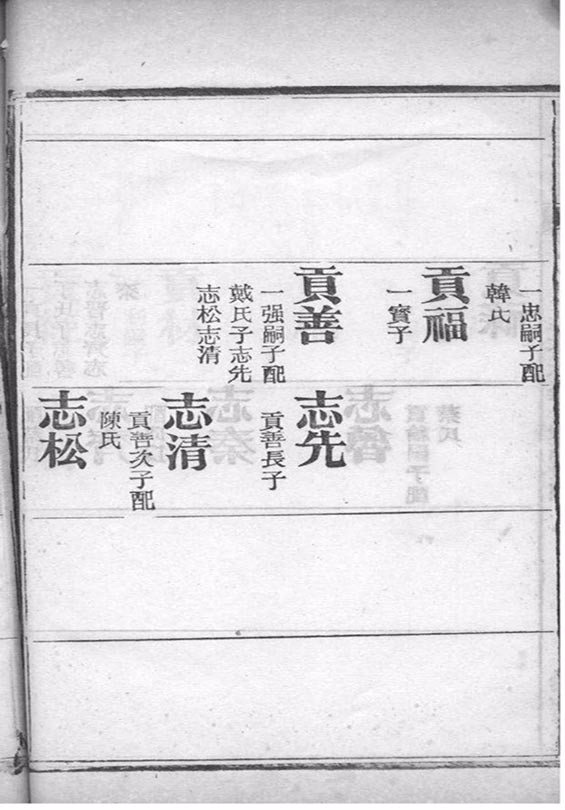 一忠嗣子配
韓氏
貢福
一寳子
貢善
一强嗣子配
戴氏子志先
志松志清
志先
貢善長子
志清
貢善次子配
陳氏
志松